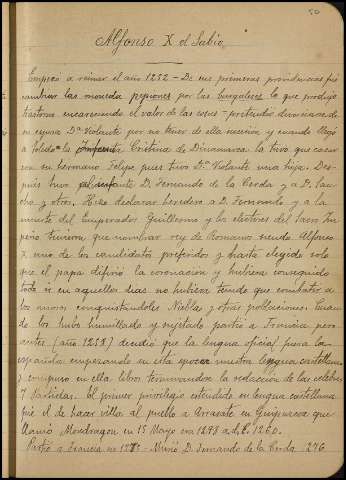 50
Alfonso X el Sabio
Empezó a reinar el año 1252 - De sus primeras providencias fué
cambiar las moneda pepiones por las burgaleses lo que produjo
trastorno encareciendo el valor de las cosas - pretendió divorciarse de
su esposa Dª Violante por no tener de ella sucesión y cuando llegó
a Toledo la Infanta Cristina de Dinamarca la tuvo que casar
con su hermano Felipe pues tuvo Dª Violante una hija. Des-
pués tuvo al infante D. Fernando de la Cerda y a D. San-
cho y otros. Hizo declarar heredero a D. Fernando y a la
muerte del Emperador Guillermo y los electores del Sacro Im
perio tuvieron que nombrar rey de Romanos siendo Alfonso
X uno de los candidatos preferidos y hasta elegido solo
que el papa difirió la coronación y hubiera conseguido
todo si en aquellos dias no hubiera tenido que combatir a
los moros conquistandoles Niebla y otras poblaciones. Cuan
do los hubo humillado y sujetado partió a Francia pero
antes (año 1252) decidió que la lengua oficial fuera la
española empezando en esta epoca nuestra lengua castellana
y compuso en ella libros terminandose la redacción de las celebres
7 Partidas. El primer privilegio estendido en lengua castellana
fué el de hacer villa al pueblo a Arrasate en Guipuzcoa que
llamó Mondragon en 15 Mayo era 1298 a. d. C. 1260.
Partió a Francia en 1275 - Murió D. Fernando de la Cerda 276